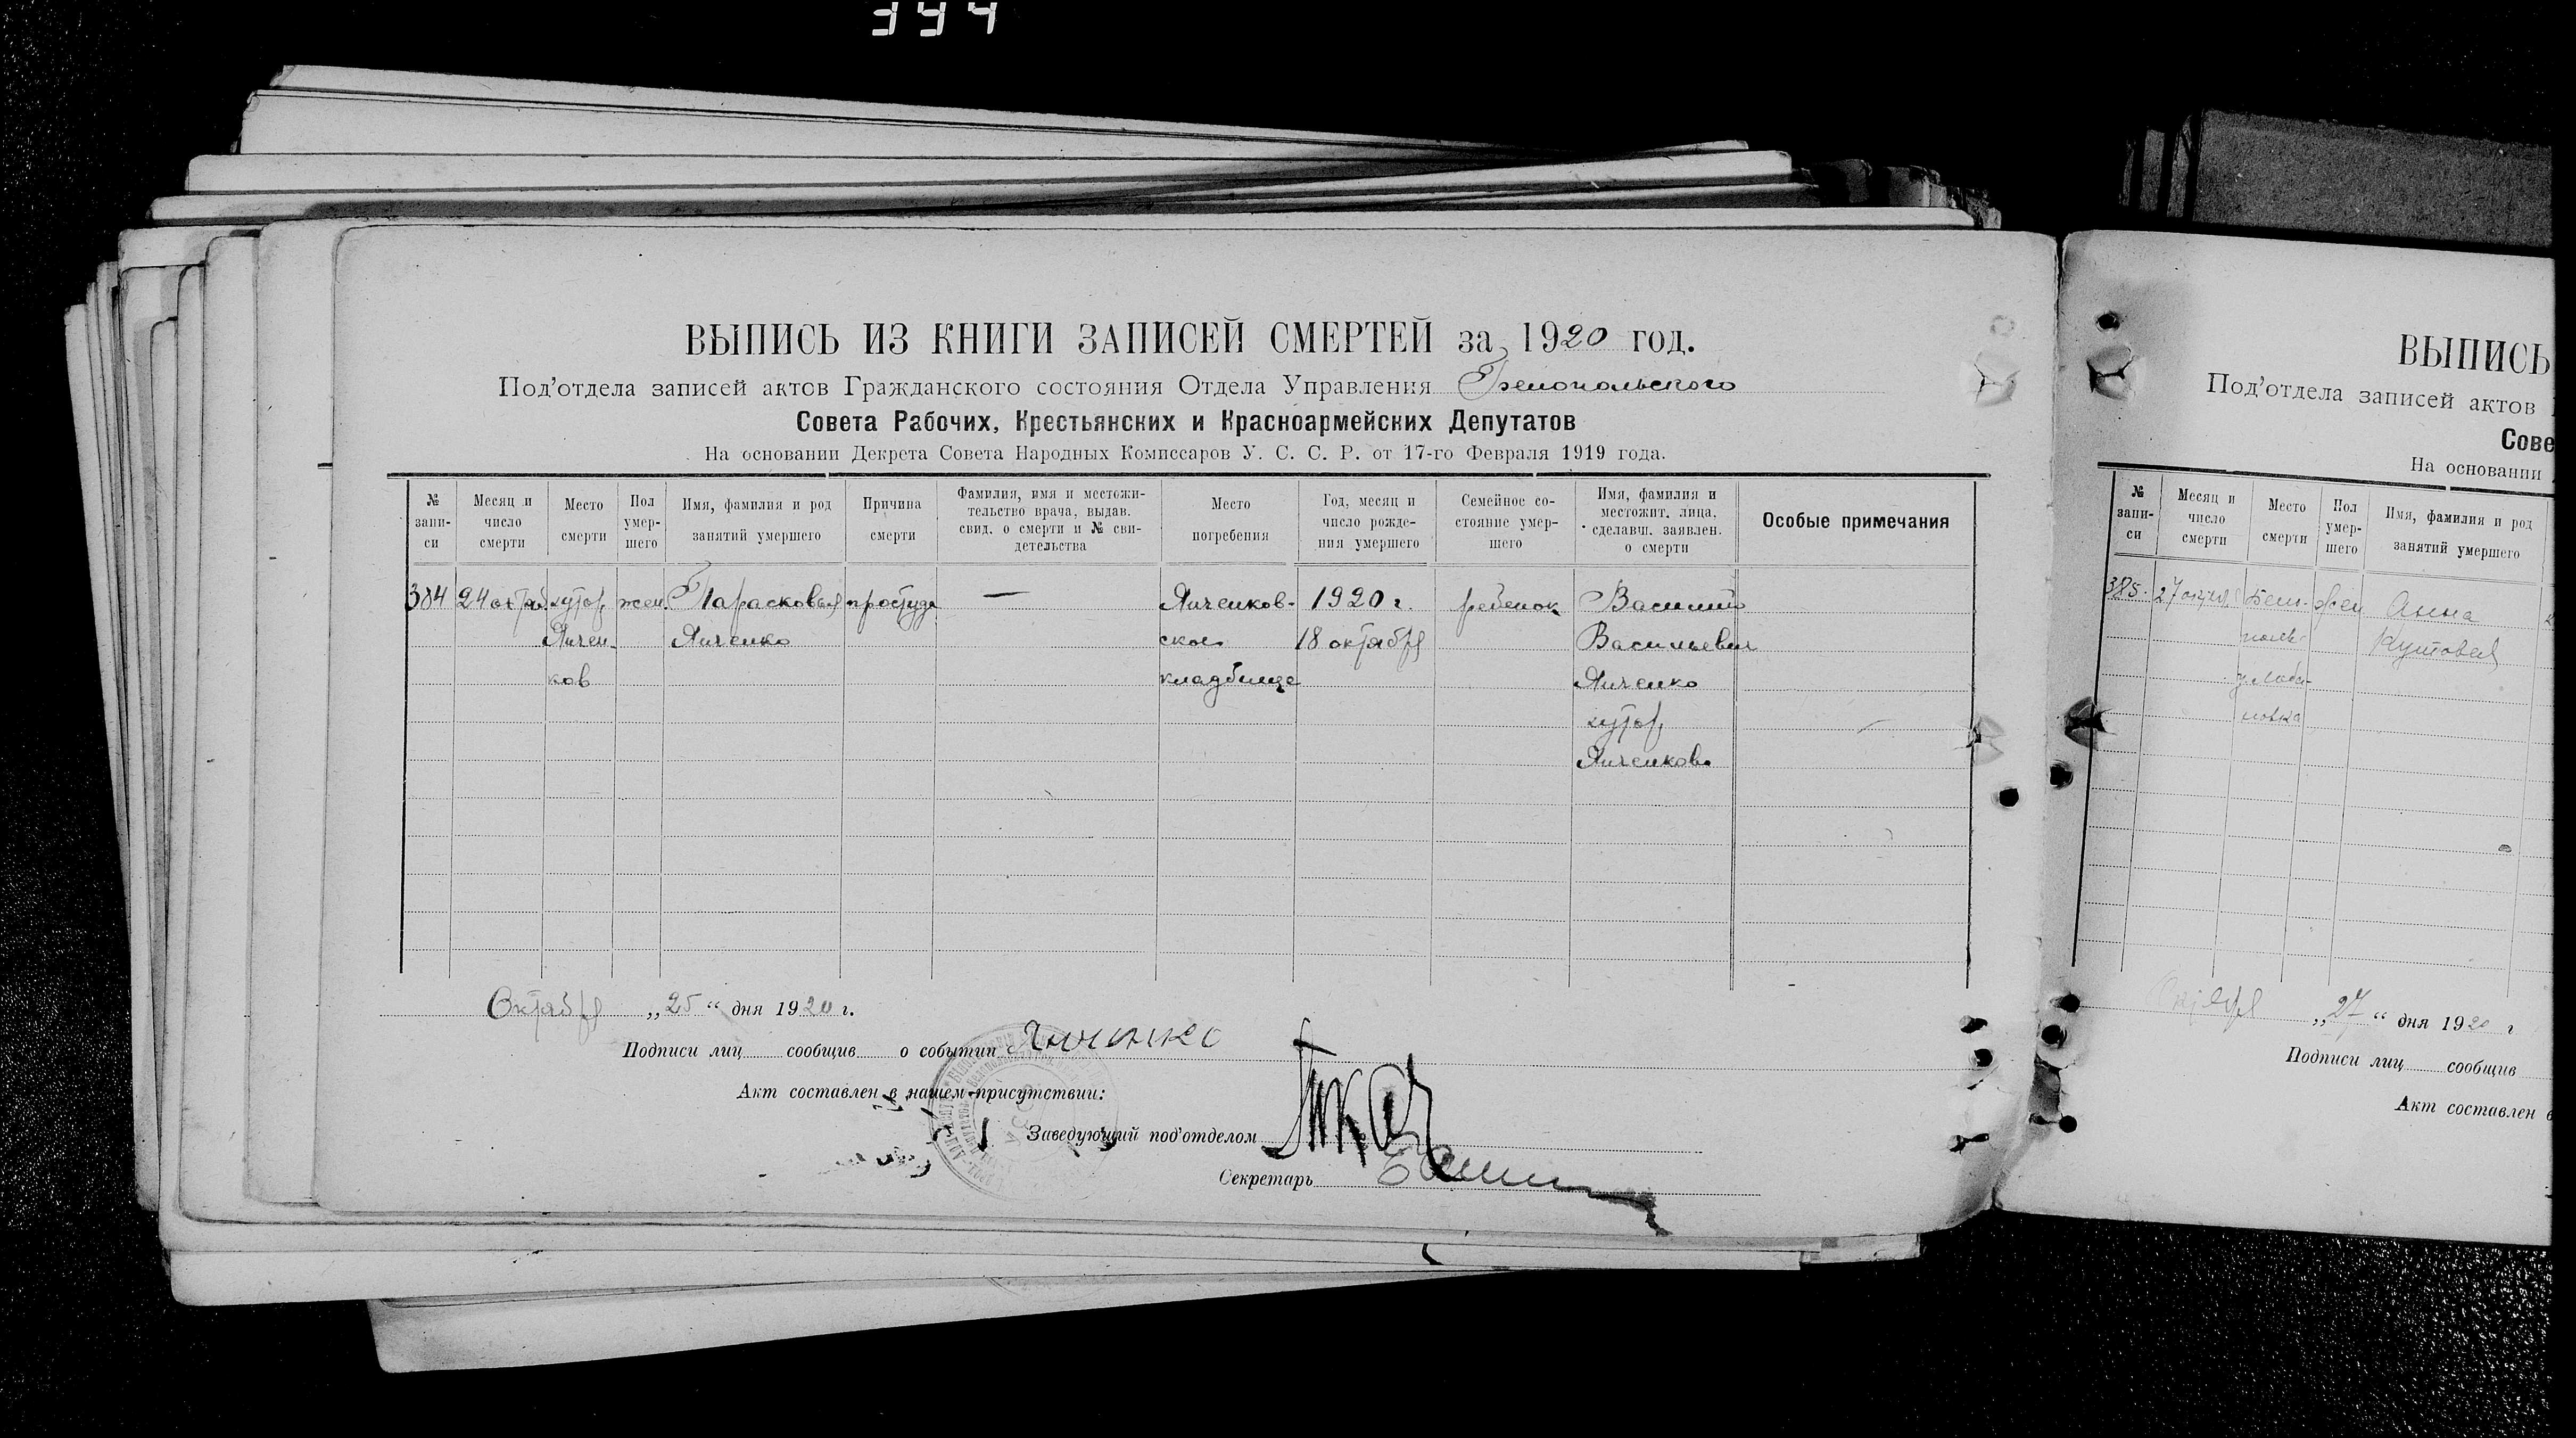 344
ВЫПИСЬ ИЗ КНИГИ ЗАПИСЕЙ СМЕРТЕЙ за 1920 год.
Под’отдела записей актов Гражданского состояния Отдела Управления Белопольского
Совета Рабочих, Крестьянских и Красноармейских Депутатов
На основании Декрета Совета Народных Комиссаров У. С. С. Р. от 17-го Февраля 1919 года.
№ запи- си
Месяц и число смерти
Место смерти
Пол умер- шего
Имя, фамилия и род занятий умершего
Причина смерти
Фамилия, имя и местожи- тельство врача, выдав. свид. о смерти и № сви- детельства
Место погребения
Год, месяц и число рожде- ния умершего
Семейное со- стояние умер- шего
Имя, фамилия и местожит. лица, сделавш. заявлен. о смерти
Особые примечания
384 24 октяб хутор жен. Парасковья простуда — Янченков- 1920 г. ребенок Василий
Янчен- Янченко ское 18 октября Васильевич
ков кладбище Янченко
хутор
Янченков
Октября „25“ дня 1920 г.
Подписи лиц сообщив о событии
Акт составлен в нашем присутствии:
Заведующий под’отделом
Секретарь
ВЫПИСЬ
Под’отдела записей актов
Сове
На основании
№ запи- си
Месяц и число смерти
Место смерти
Пол умер- шего
Имя, фамилия и род занятий умершего
385. Бело- жен Анна
Кутовая
новка
„27“ дня 1920 г
Подписи лиц сообщив
Акт составлен в